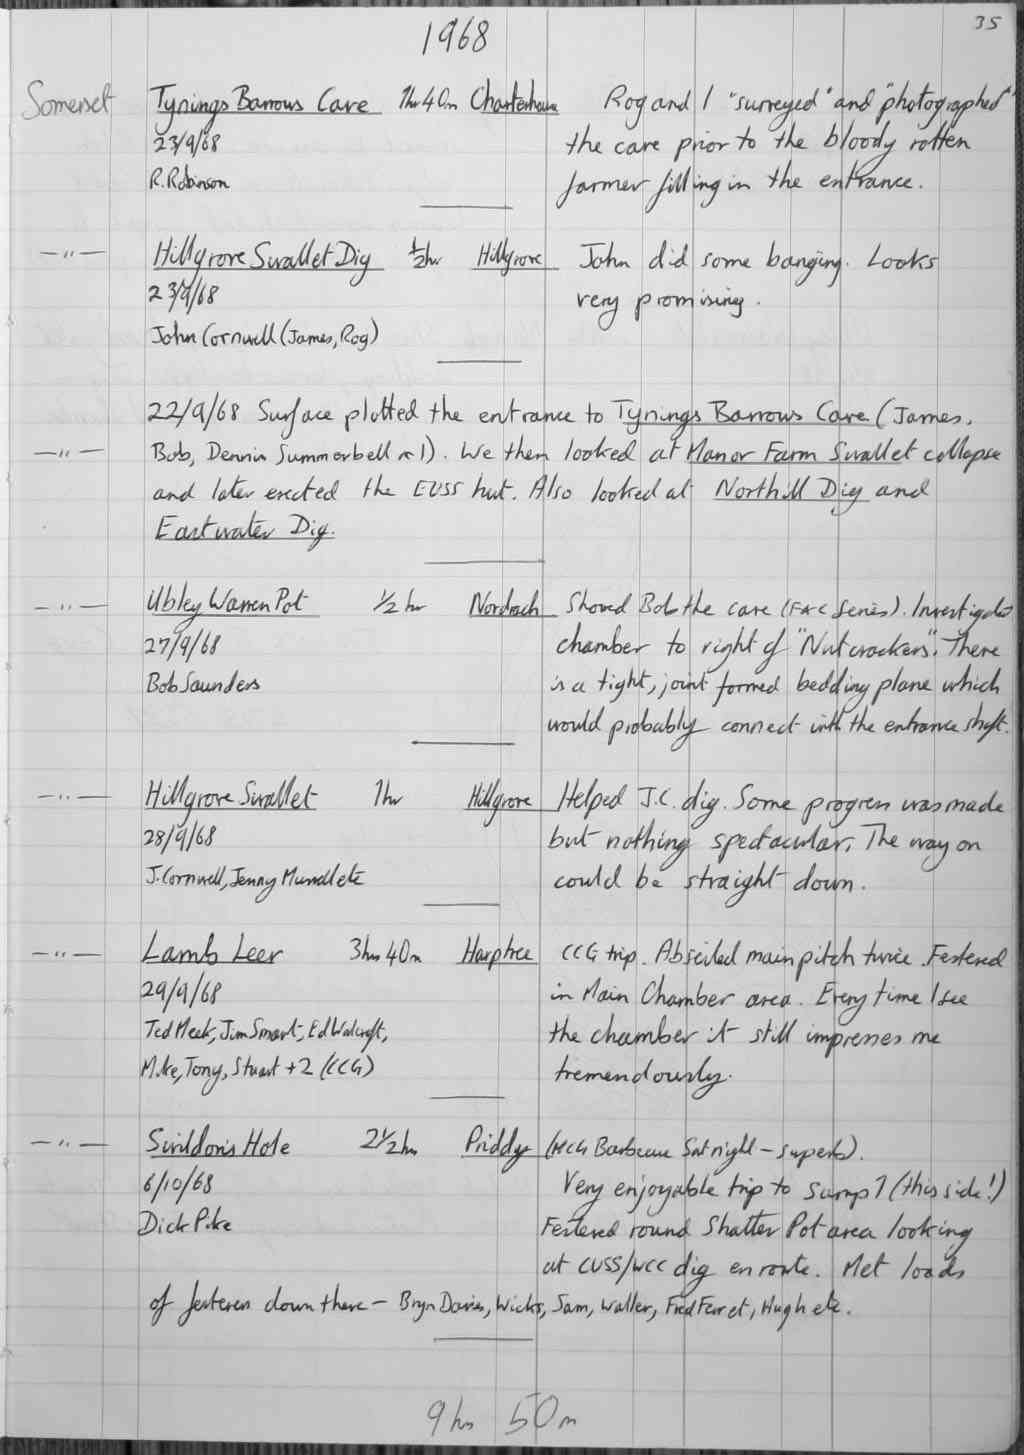 35
1968
Somerset Tynings Barrows Cave 1hr 40m Charterhouse Rog and I "surveyed" and "photographed"
23/9/68 the cave prior to the bloody rotten
R. Robinson farmer filling in the entrance.
—"— Hillgrove Swallet Dig ½hr Hillgrove John did some banging. Looks
23/9/68 very promising.
John Cornwell (James, Rog)
22/9/68 Surface plotted the entrance to Tynings Barrows Cave (James,
—"— Bob, Dennis Summerbell & I). We then looked at Manor Farm Swallet collapse
and later erected the EUSS hut. Also looked at Northill Dig and
Eastwater Dig.
—"— Ubley Warren Pot ½ hr Nordrach Showed Bob the cave (F&C Series). Investigated
27/9/68 chamber to right of "Nutcrackers". There
Bob Saunders is a tight, joint formed bedding plane which
would probably connect with the entrance shaft.
—"— Hillgrove Swallet 1hr Hillgrove Helped J.C. dig. Some progress was made
28/9/68 but nothing spectacular. The way on
J. Cornwell, Jenny Mundl etc could be straight down.
—"— Lamb Leer 3hrs 40m Harptree CCG trip. Abseiled main pitch twice. Festered
29/9/68 in Main Chamber area. Every time I see
Ted Meek, Jim Smart, Ed Walcroft, the chamber it still impresses me
Mike, Tony, Stuart + 2 (CCG) tremendously.
—"— Swildon's Hole 2½ hrs Priddy (MCG Barbecue Sat night – superb).
6/10/68 Very enjoyable trip to Sump 7 (this side!)
Dick Pike Festered round Shatter Pot area looking
at CUSS/WCC dig en route. Met loads
of festerers down there – Bryn Davies, Wicks, Sam, Waller, Fred Ferret, Hugh etc.
9 hrs 50m